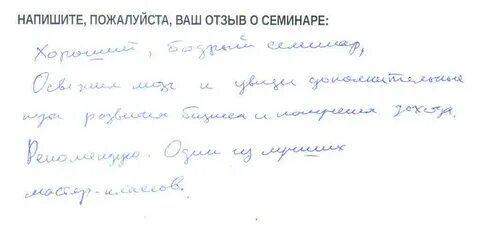 НАПИШИТЕ, ПОЖАЛУЙСТА, ВАШ ОТЗЫВ О СЕМИНАРЕ:
Хороший, бодрый семинар,
Освежил мозг и увидел дополнительные
пути развития бизнеса и получения дохода.
Рекомендую. Один из лучших
мастер-классов.